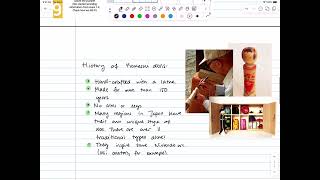 History of Kokeshi dolls:
Hand-crafted with a lathe.
Made for more than 150
years
No arms or legs
Many regions in Japan have
their own unique style of
There are over
traditional types alone!
They inspired some Nintendo
(Mii avatars, for example).